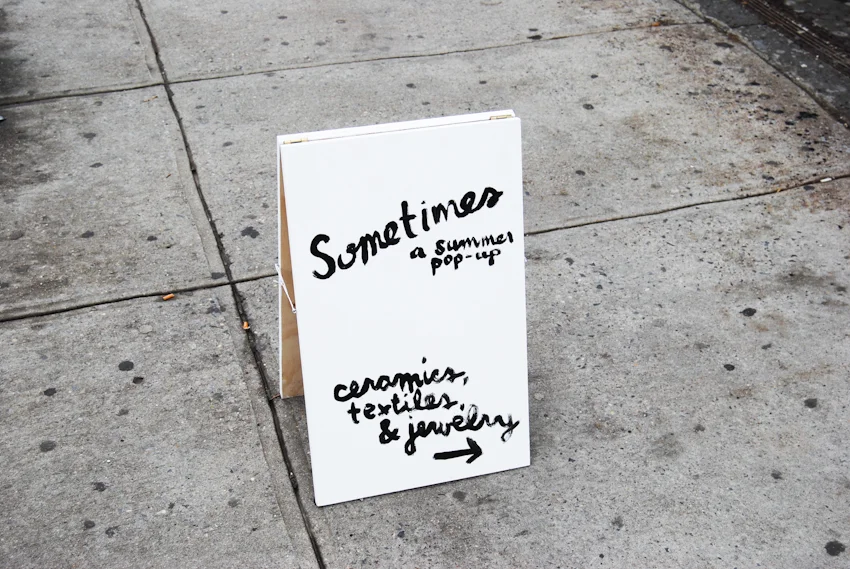 Sometimes
a summer
pop-up
ceramics,
textiles,
& jewelry